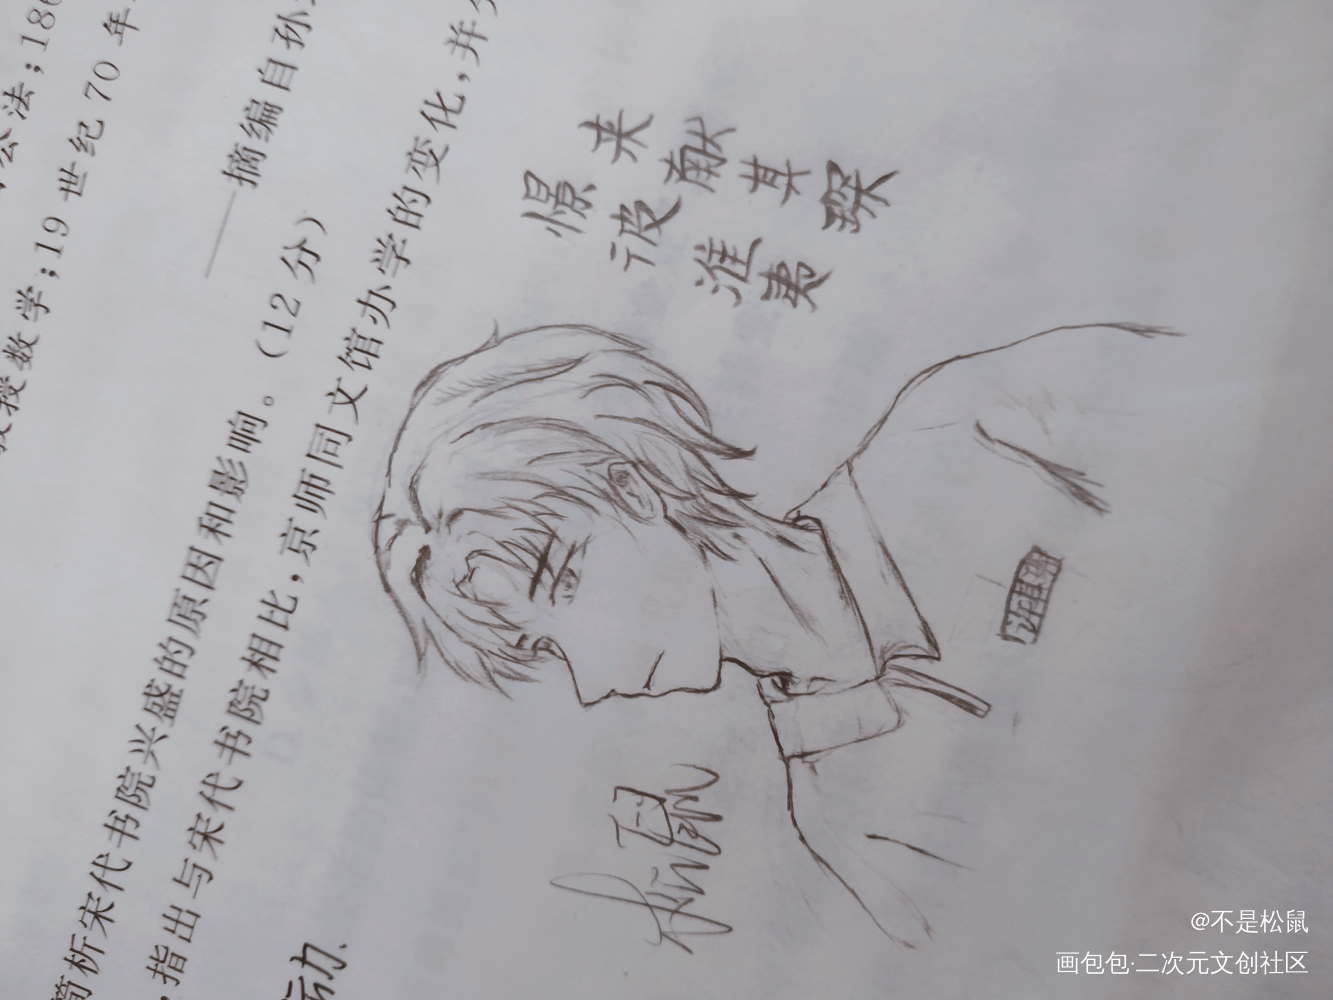 公法；186
授数学；19 世纪 70 年
——摘编自孙
简析宋代书院兴盛的原因和影响。（12 分）
，指出与宋代书院相比，京师同文馆办学的变化，并
运动.
憬彼淮夷
来献其琛
松鼠
@不是松鼠
画包包·二次元文创社区